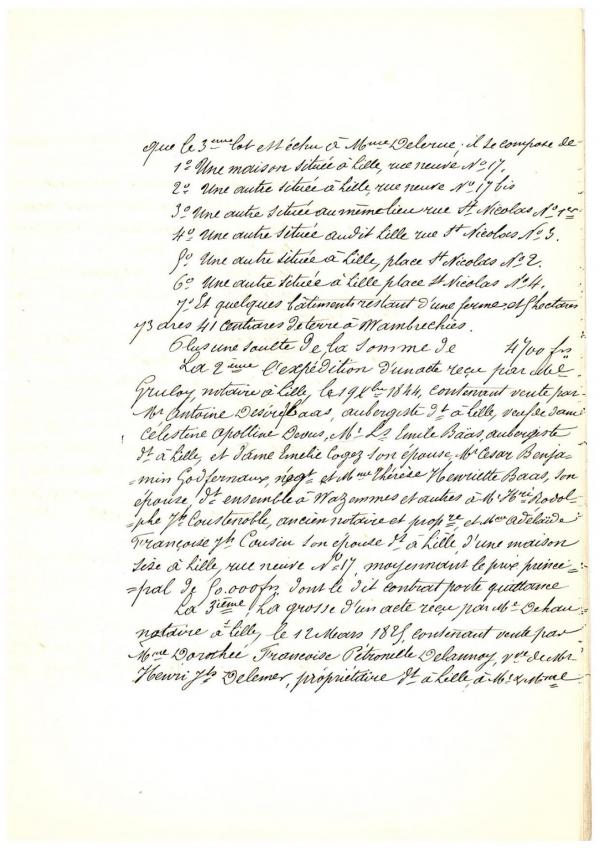 que le 3eme lot est échu à Mme Delerue; il se compose de
1º Une maison située à Lille, rue neuve Nº 17.
2º Une autre située à Lille, rue neuve Nº 17 bis
3º Une autre située au même lieu rue St Nicolas Nº 1er
4º Une autre située audit Lille rue St Nicolas Nº 3.
5º Une autre située à Lille, place St Nicolas Nº 2.
6º Une autre située à Lille place St Nicolas Nº 4.
7º Et quelques bâtiments restant d'une ferme et 5 hectares
73 ares 41 centiares de terre à Wambrechies.
Plus une soulte de la somme de 4700 frs
La 2ième l'expédition d'un acte reçu par Me
Gruloy, notaire à Lille, le 19 Xbre 1844, contenant vente par
Mr Antoine Désiré Baas, aubergiste dt à Lille, veuf de dame
Célestine Apolline Devos, Mr Ls Emile Baas, aubergiste
dt à Lille, et dame Emelie Cogez son épouse, Mr César Benja-
=min Godfernaux, négt et Mme Thérèse Henriette Baas, son
épouse, dt ensemble à Wazemmes et autres à Mr Hri Rodol-
=phe Jh Coustenoble, ancien notaire et propre, et Mme Adélaïde
Françoise Jh Cousin son épouse dt à Lille, d'une maison
sise à Lille, rue neuve Nº 17, moyennant le prix princi=
=pal de 50.000 frs dont le dit contrat porte quittance
La 3ième La grosse d'un acte reçu par Me Dehau
notaire à Lille, le 12 Mars 1825, contenant vente par
Mme Dorothée Françoise Pétronelle Delannoy, vve de Mr
Henri Jh Delemer, propriétaire dt à Lille, à Mr & Mme